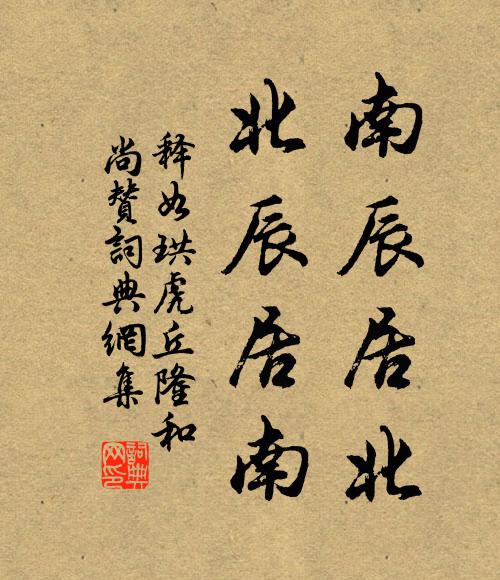 南辰居北
北辰居南
释如珙虎丘隆和
尚赞詞典網集
詞典网印